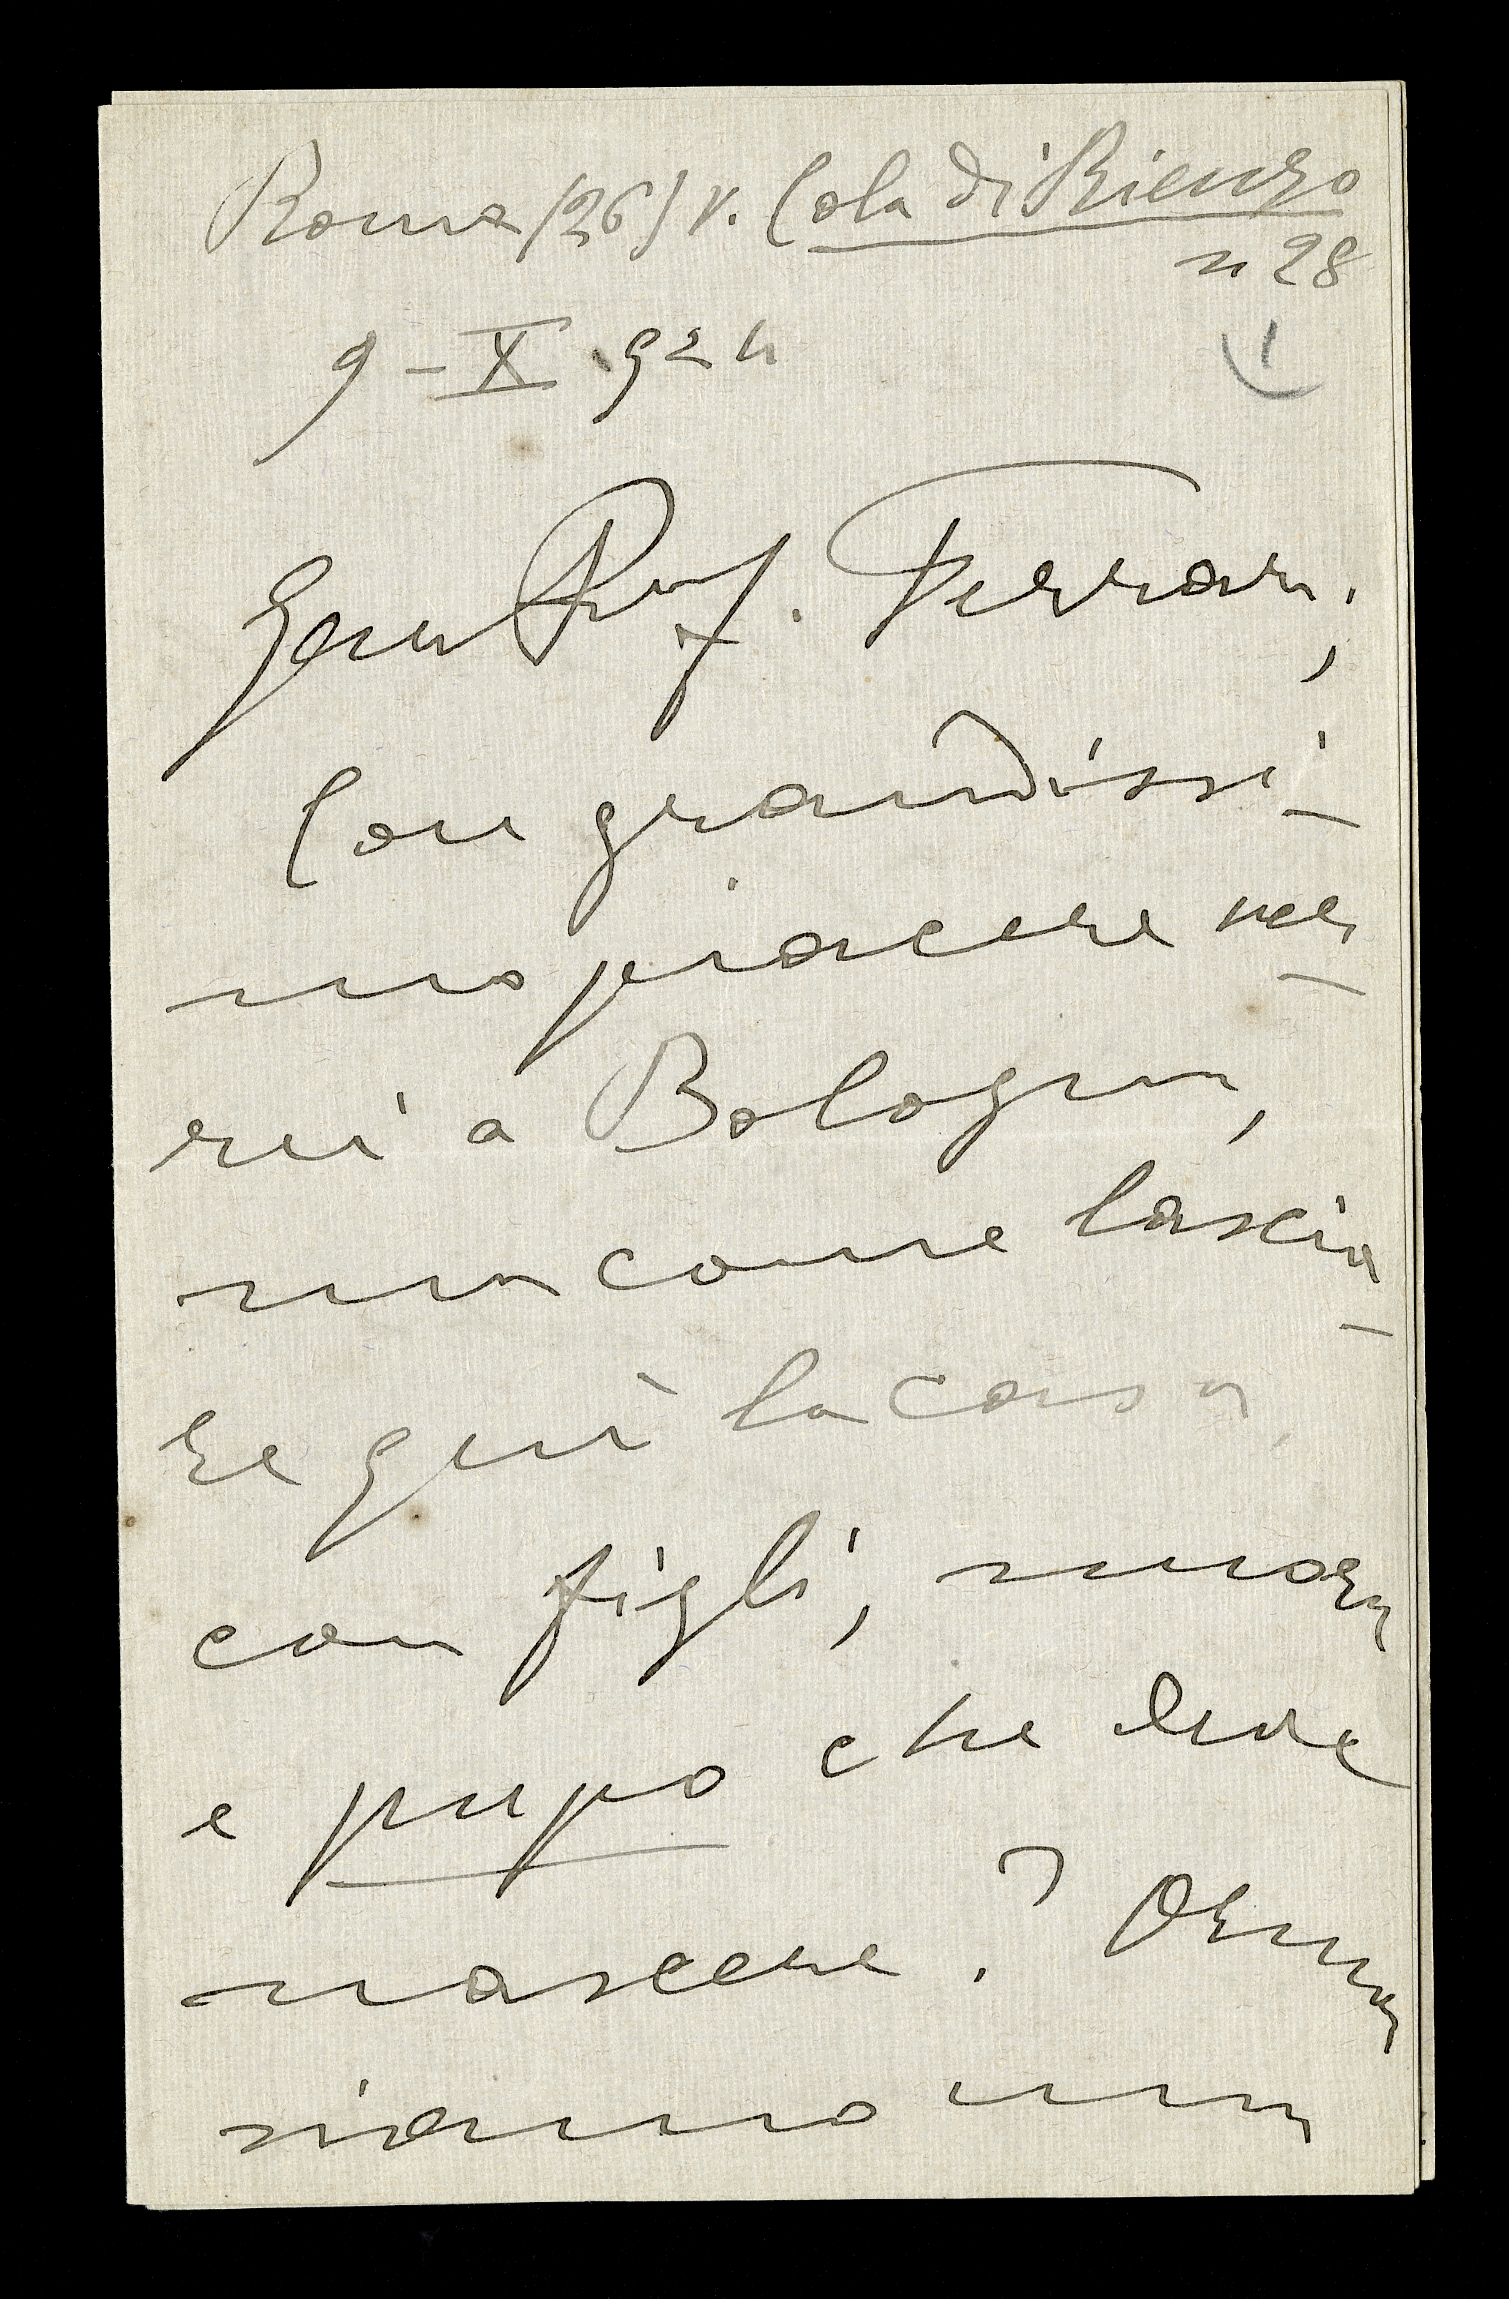 Roma (26) v. Cola di Rienzo
n 28
9 - X. 924
1
Gen Prof. Ferrari,
Con grandissi-
mo piacere ver-
rei a Bologna,
ma come lascia-
re qui la casa,
con figli,
e pupo che deve
nascere? Ormai
siamo una